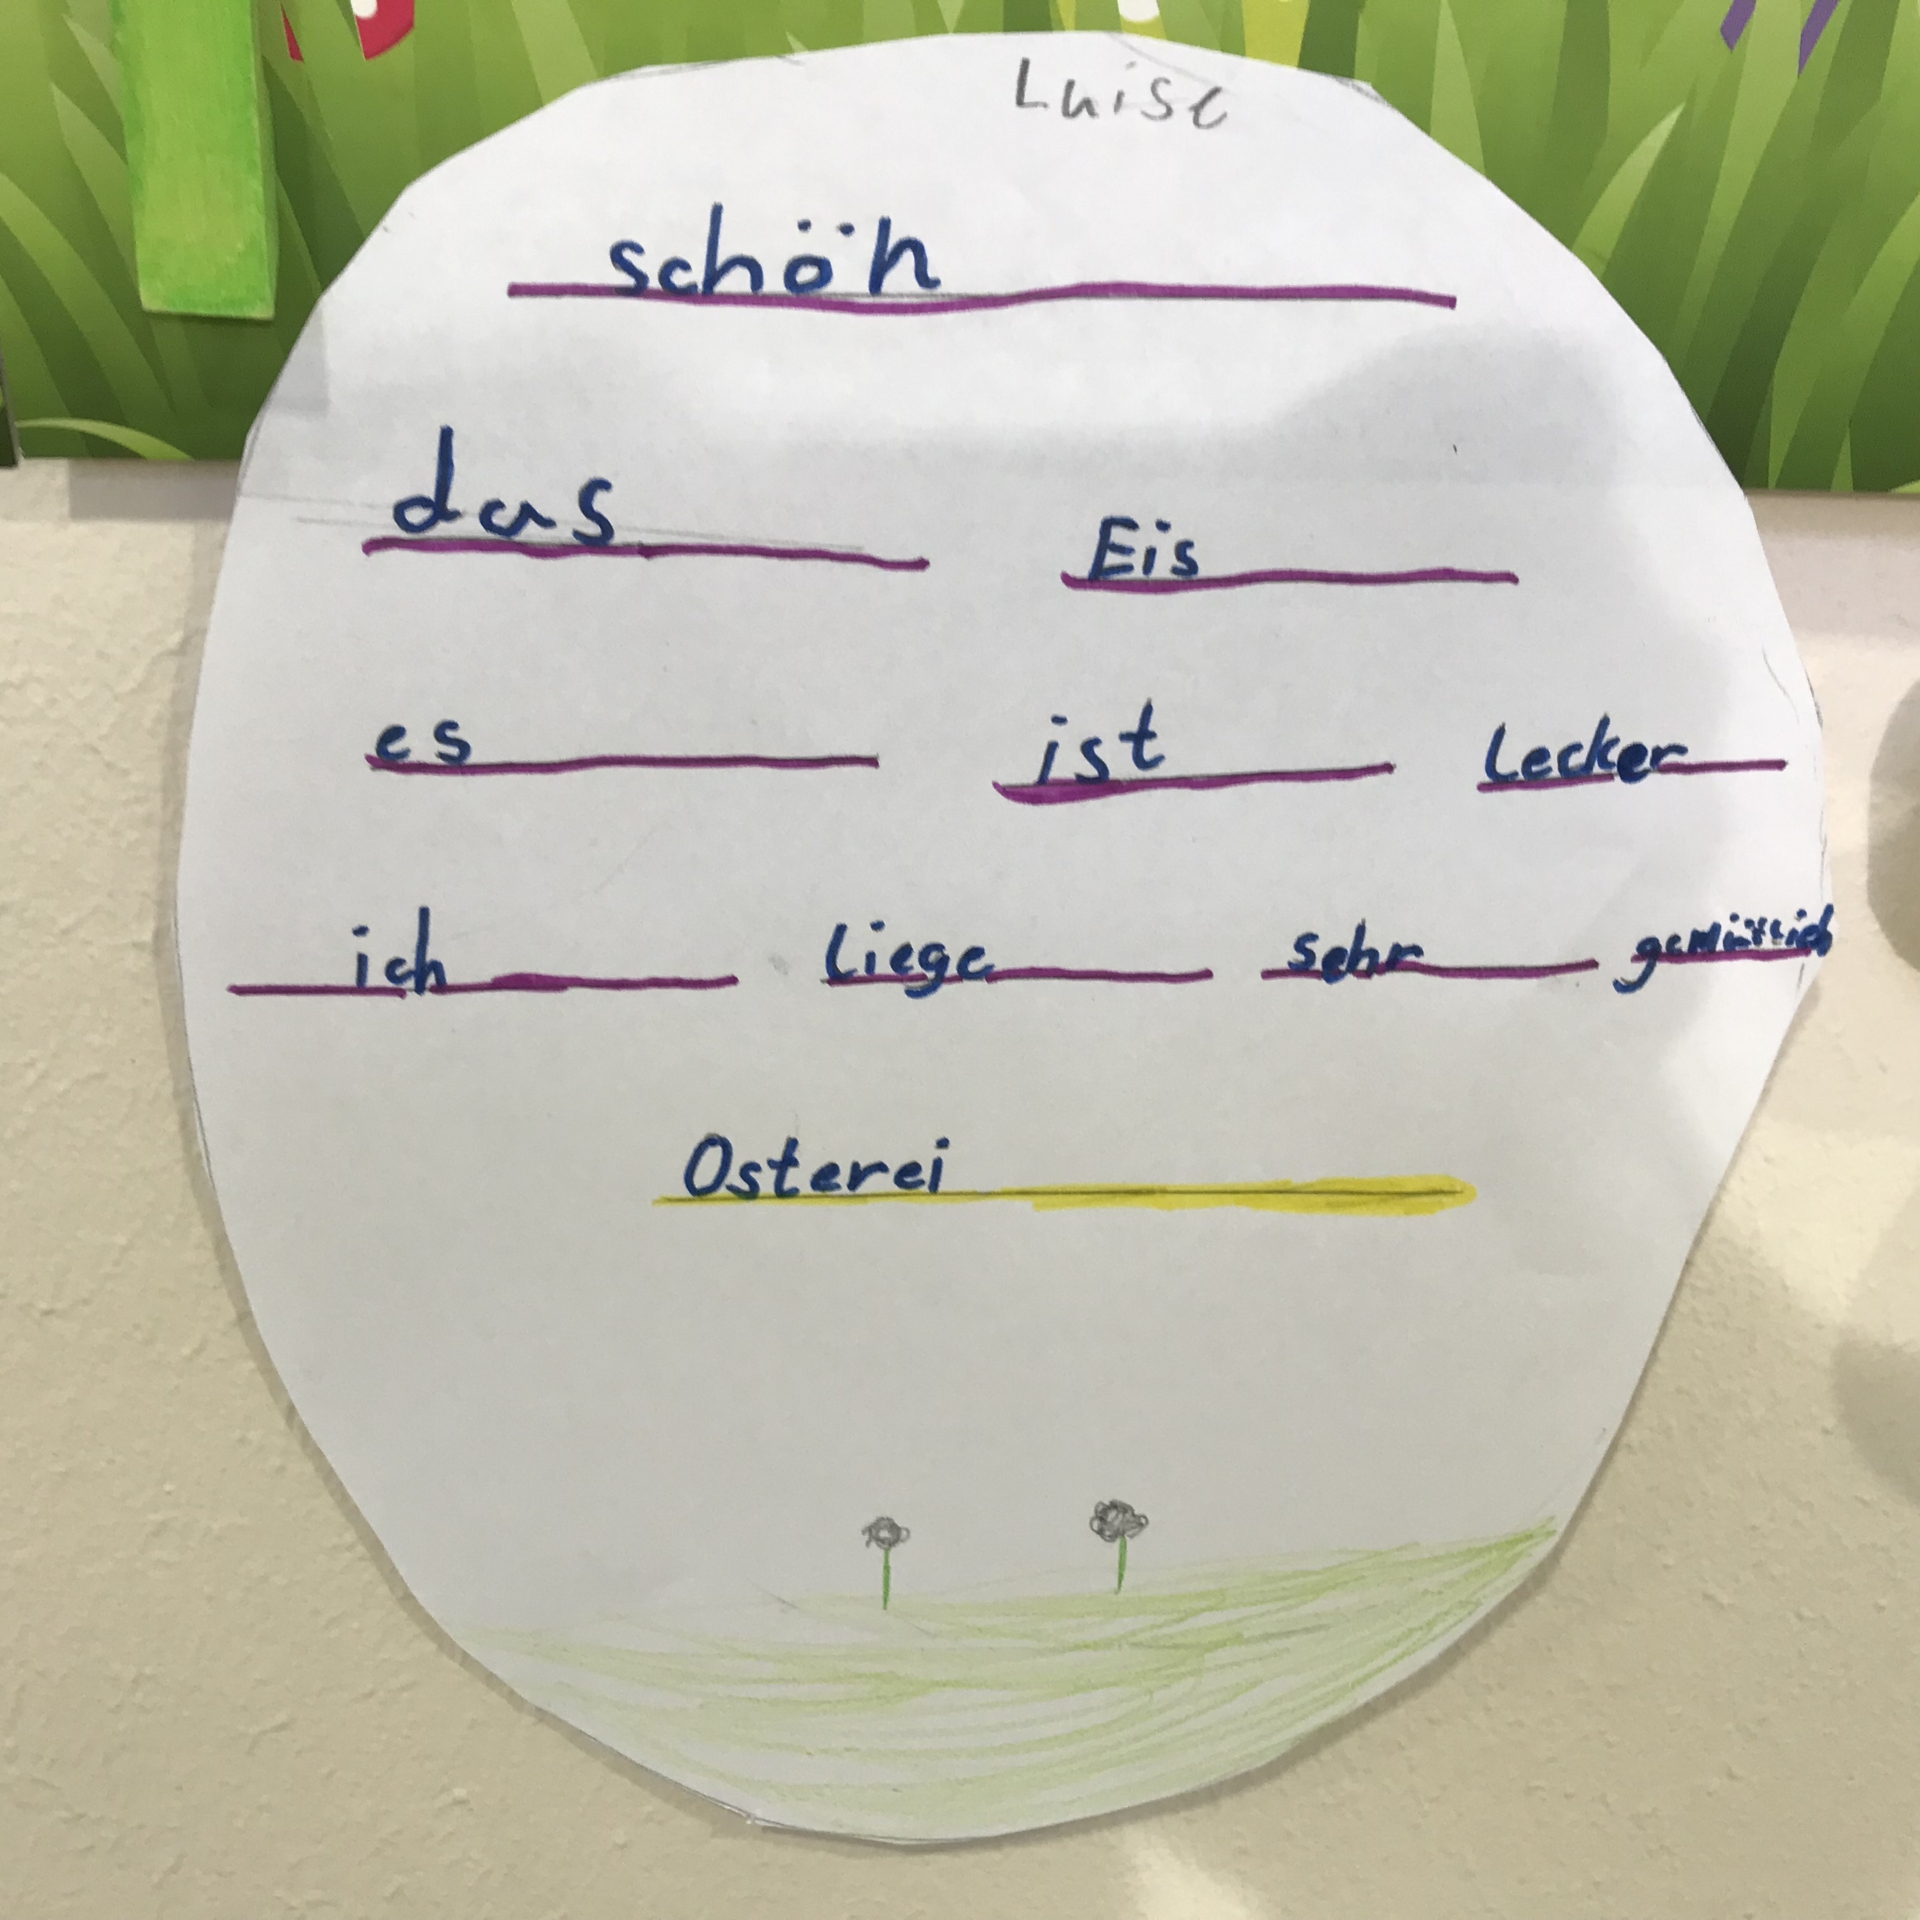 Luise
schön
das Eis
es ist Lecker
ich Liege sehr gemütlich
Osterei